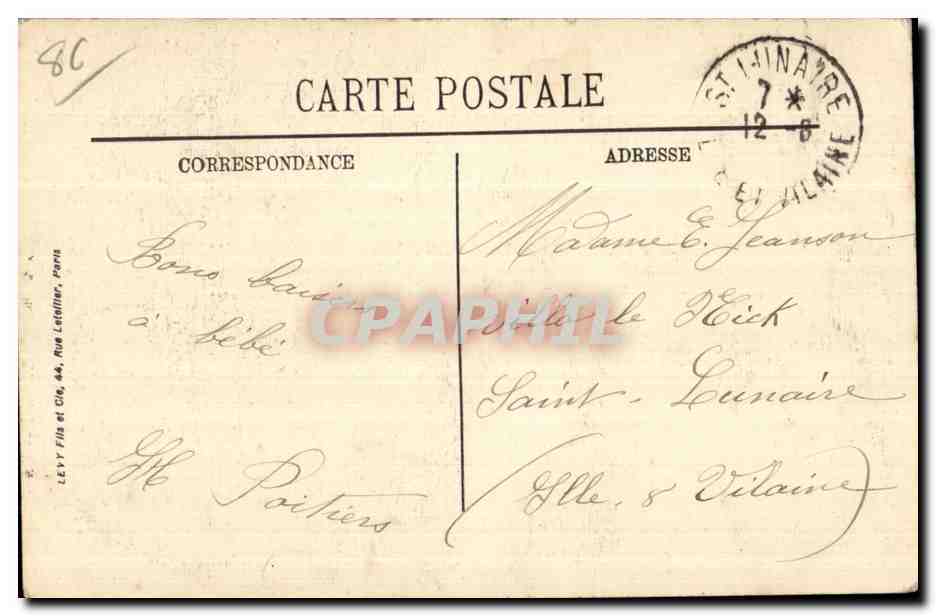 86
CARTE POSTALE
ST LUNAIRE
7 *
12 -8
ET VILAINE
CORRESPONDANCE
ADRESSE
Bons baisers
à bébé
M Poitiers
Madame E. Jeanson
Villa le Nick
Saint-Lunaire
(Ille & Vilaine)
LEVY Fils et Cie, 44, Rue Letellier, Paris
CPAPHIL